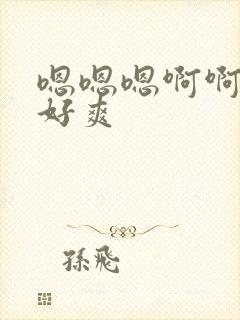 嗯嗯嗯啊啊
好爽
孫飛